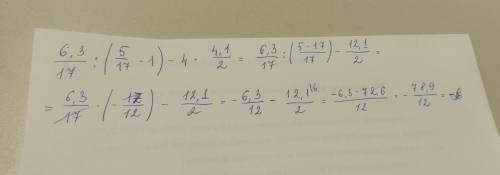 6,3/17 : (5/17 - 1) - 4 · 4,1/2 = 6,3/17 : (5-17/17) - 12,1/2 =
= 6,3/17 · (-17/12) - 12,1/2 = -6,3/12 - 12,1/2 = -6,3-72,6/12 = -78,9/12 =